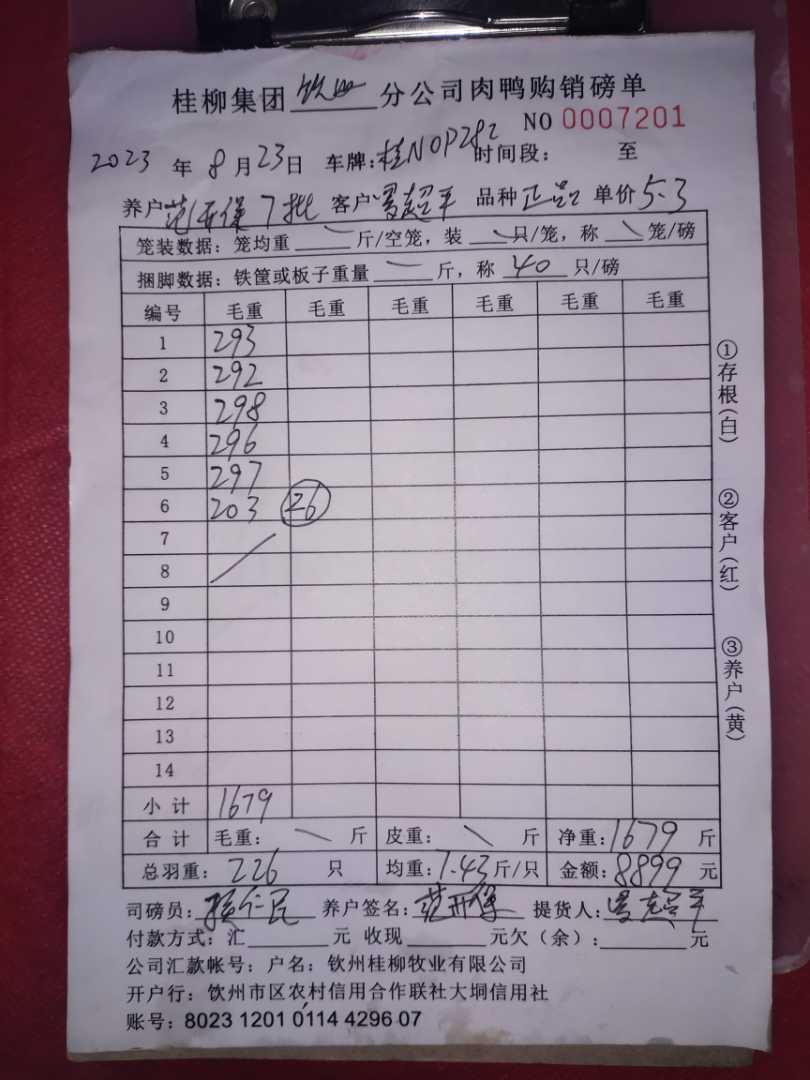 桂柳集团钦州分公司肉鸭购销磅单
NO 0007201
2023年8月23日 车牌:桂N0P282 时间段: 至
养户范开保7批 客户 品种正品 单价5.3
笼装数据: 笼均重 斤/空笼, 装 只/笼, 称 笼/磅
捆脚数据: 铁筐或板子重量 斤, 称40只/磅
编号 毛重 毛重 毛重 毛重 毛重 毛重
1 293
2 292
3 298
4 296
5 297
6 203 26
7
8
9
10
11
12
13
14
小计 1679
合计 毛重: 斤 皮重: 斤 净重:1679斤
总羽重: 226 只 均重:7.43斤/只 金额:8899元
司磅员: 养户签名:范开保 提货人:
付款方式: 汇 元 收现 元欠(余): 元
公司汇款帐号: 户名: 钦州桂柳牧业有限公司
开户行: 钦州市区农村信用合作联社大垌信用社
账号: 8023 1201 0114 4296 07
①存根(白)
②客户(红)
③养户(黄)